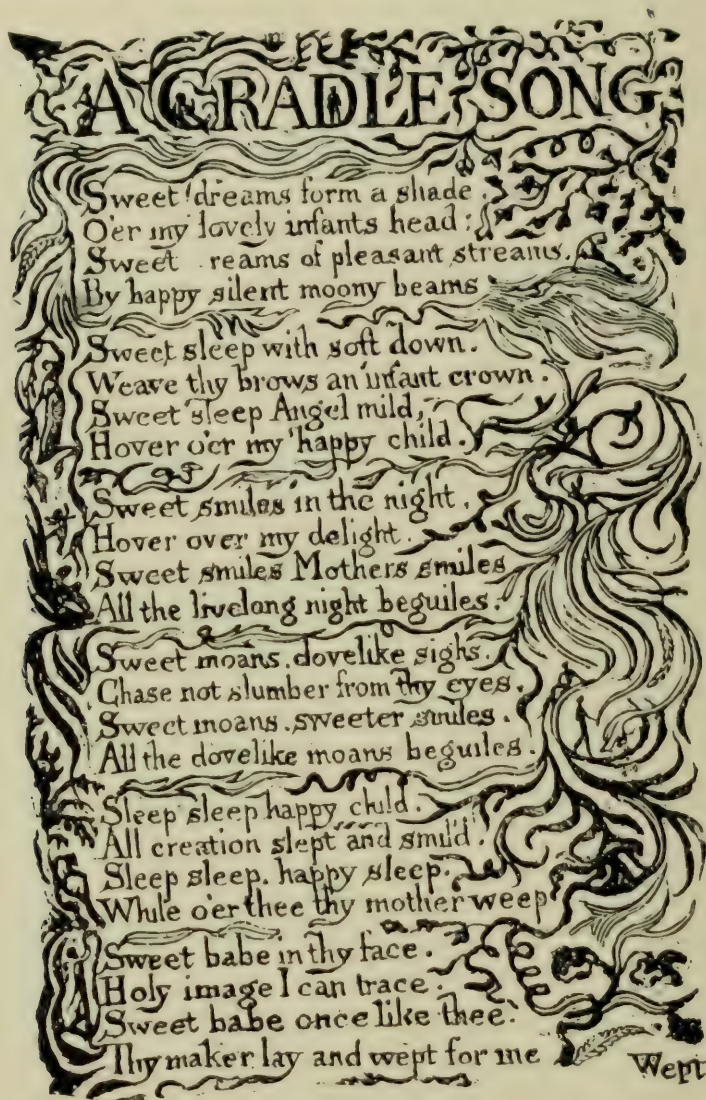 A CRADLE SONG
Sweet dreams form a shade
O'er my lovely infants head:
Sweet reams of pleasant streams.
By happy silent moony beams
Sweet sleep with soft down.
Weave thy brows an infant crown.
Sweet sleep Angel mild,
Hover o'er my happy child.
Sweet smiles in the night.
Hover over my delight.
Sweet smiles Mothers smiles
All the livelong night beguiles.
Sweet moans. dovelike sighs.
Chase not slumber from thy eyes.
Sweet moans. sweeter smiles.
All the dovelike moans beguiles.
Sleep sleep happy child.
All creation slept and smil'd.
Sleep sleep. happy sleep.
While o'er thee thy mother weep
Sweet babe in thy face.
Holy image I can trace.
Sweet babe once like thee.
Thy maker lay and wept for me
Wept